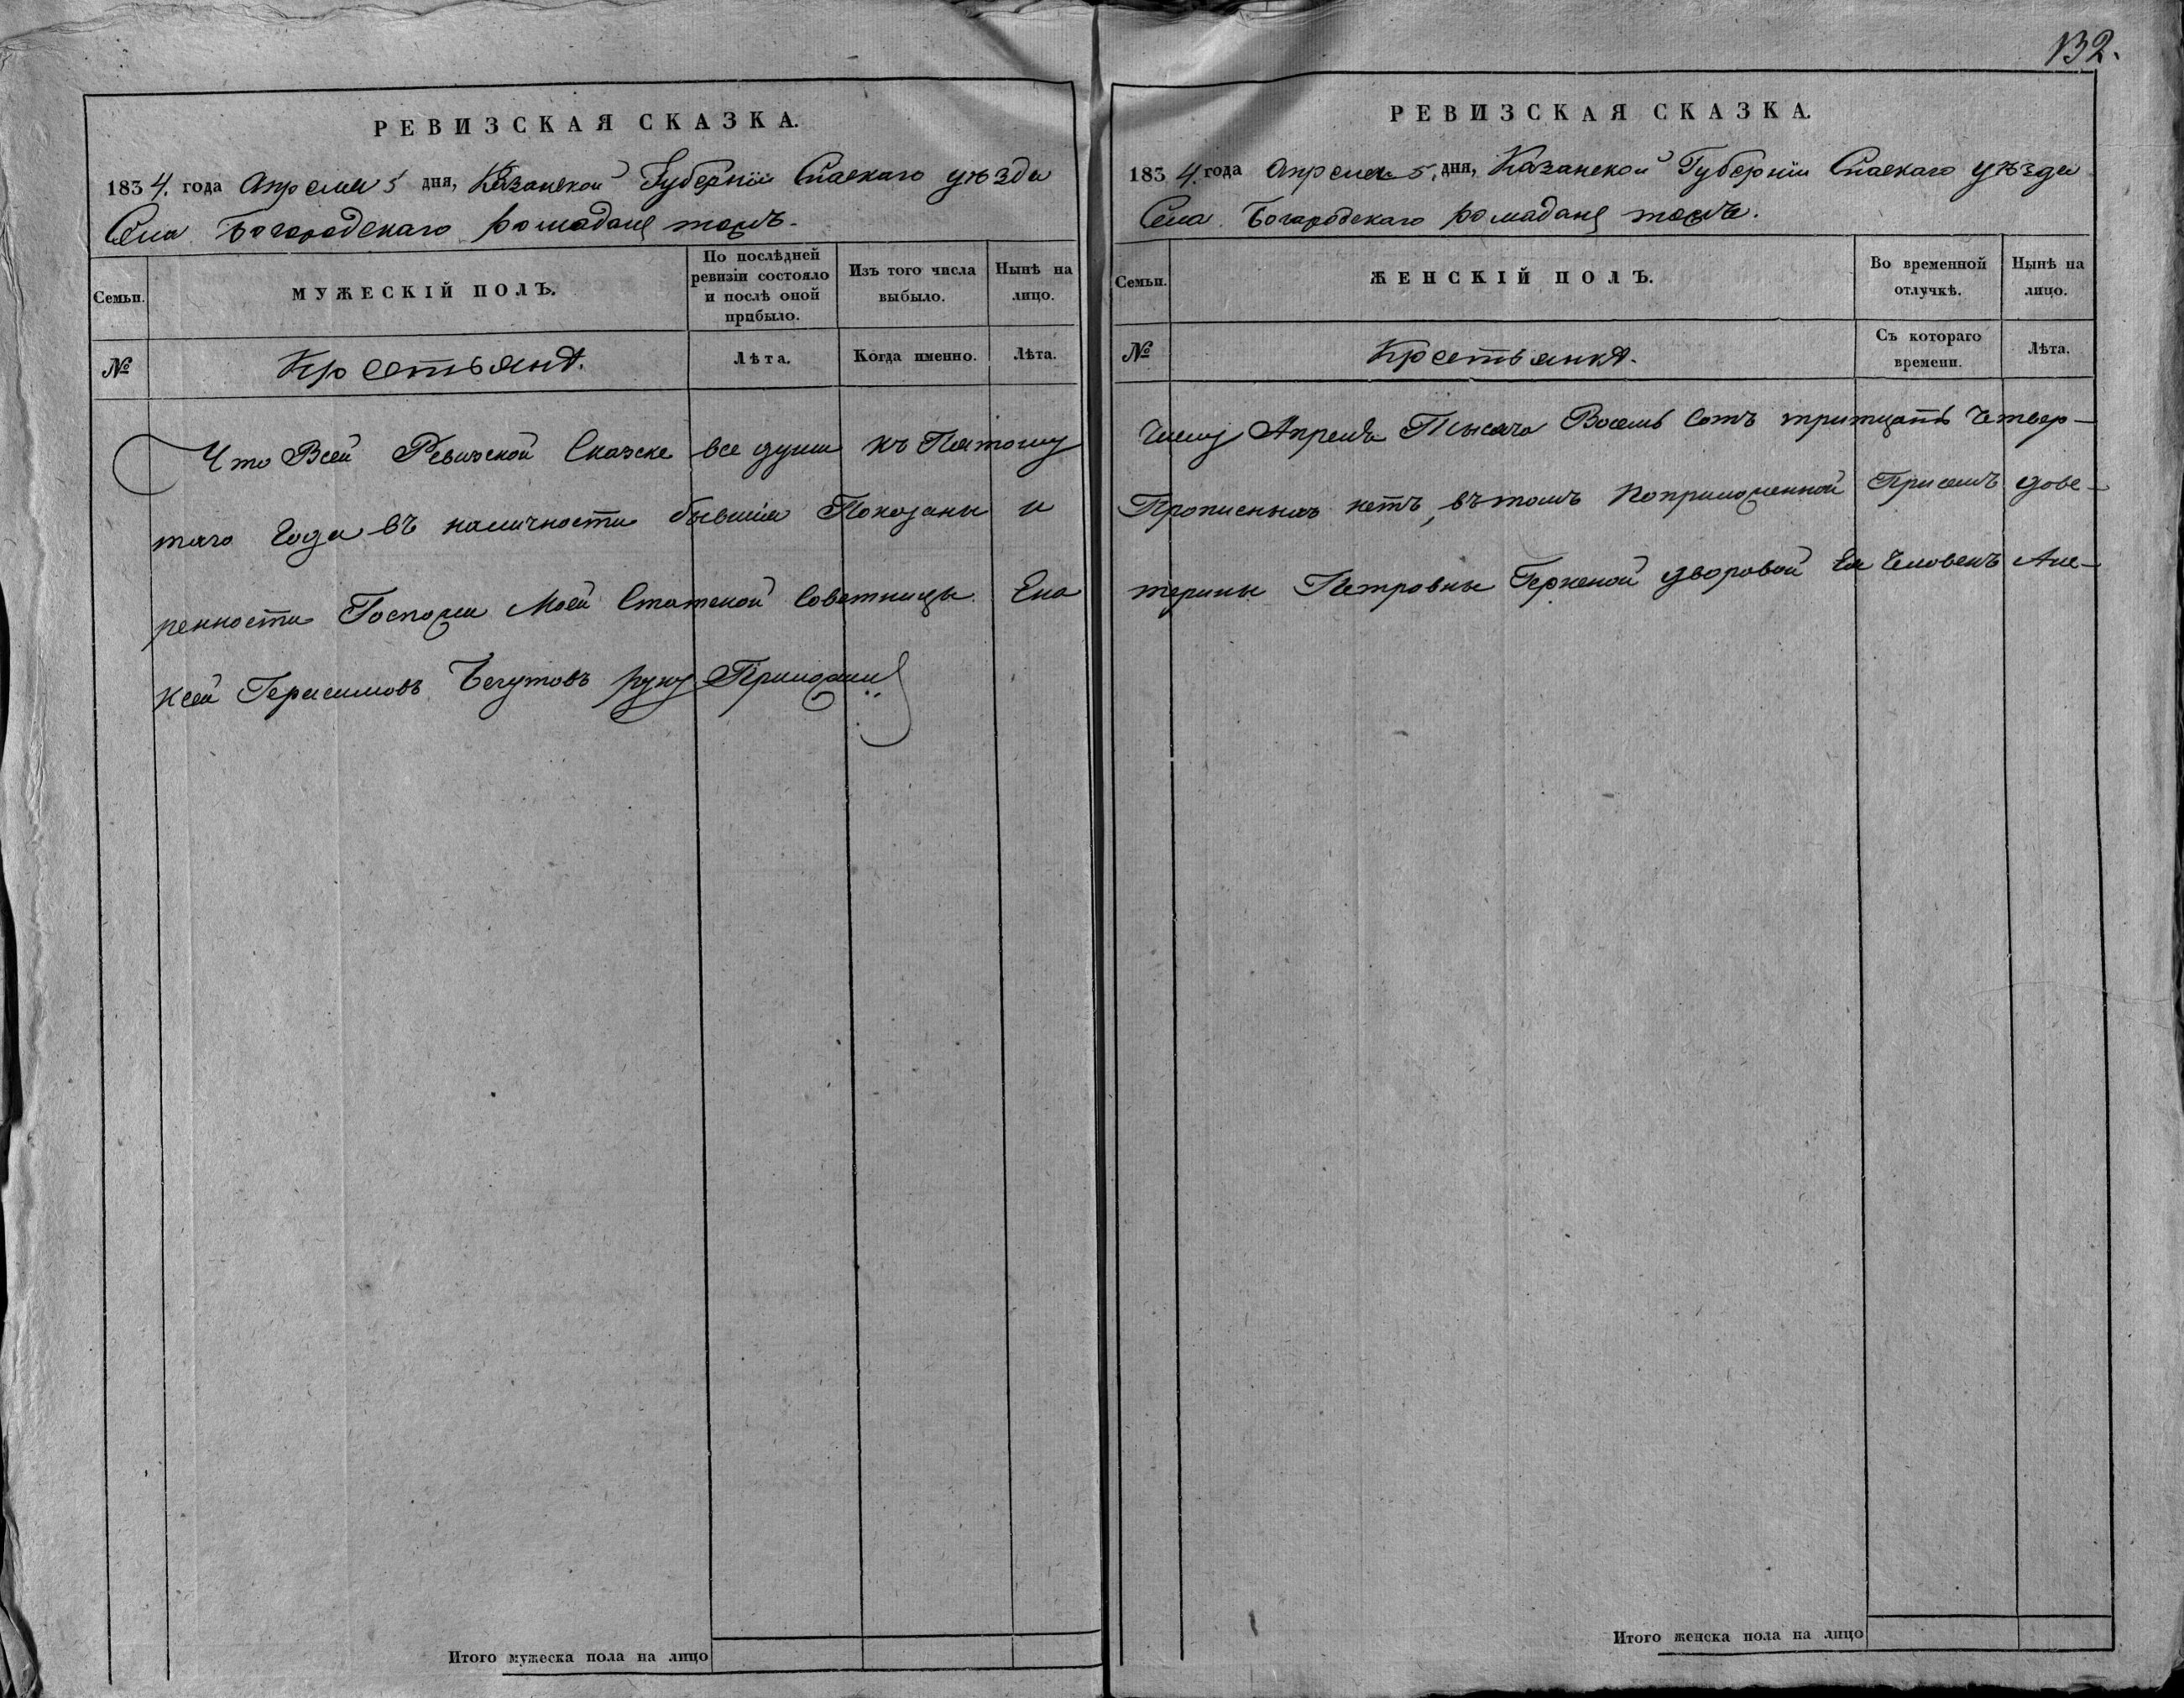 132.
РЕВИЗСКАЯ СКАЗКА.
1834. года Апреля 5 дня, Казанской Губернїи Спаскаго уѣзда
Села Богородскаго Ромадана тожъ.
Семьи.
МУЖЕСКІЙ ПОЛЪ.
По послѣдней
ревизіи состояло
и послѣ оной
прибыло.
Изъ того числа
выбыло.
Нынѣ на
лицо.
№
Крестьянѣ.
Лѣта.
Когда именно.
Лѣта.
Что Всей Ревизской Сказске все души къ Пятому
таго Года въ наличности бывшїя Показаны и
ренности Госпожи Моей Статской Советницы Ека
ксей Герасимовъ Бегутовъ руку Приложил
Итого мужеска пола на лицо
РЕВИЗСКАЯ СКАЗКА.
1834. года Апреля 5, дня, Казанской Губернїи Спаскаго уѣзда
Села Богородскаго Ромадана тожъ.
Семьи.
ЖЕНСКІЙ ПОЛЪ.
Во временной
отлучкѣ.
Нынѣ на
лицо.
№
Крестьянкѣ.
Съ котораго
времени.
Лѣта.
Числу Апреля Тысяча Восемь Сотъ тритцать Четвер-
Прописныхъ нетъ, въ томъ Поприложенной Присемъ дове-
терины Петровны Геркеной дворовой Ея Человекъ Але-
Итого женска пола на лицо